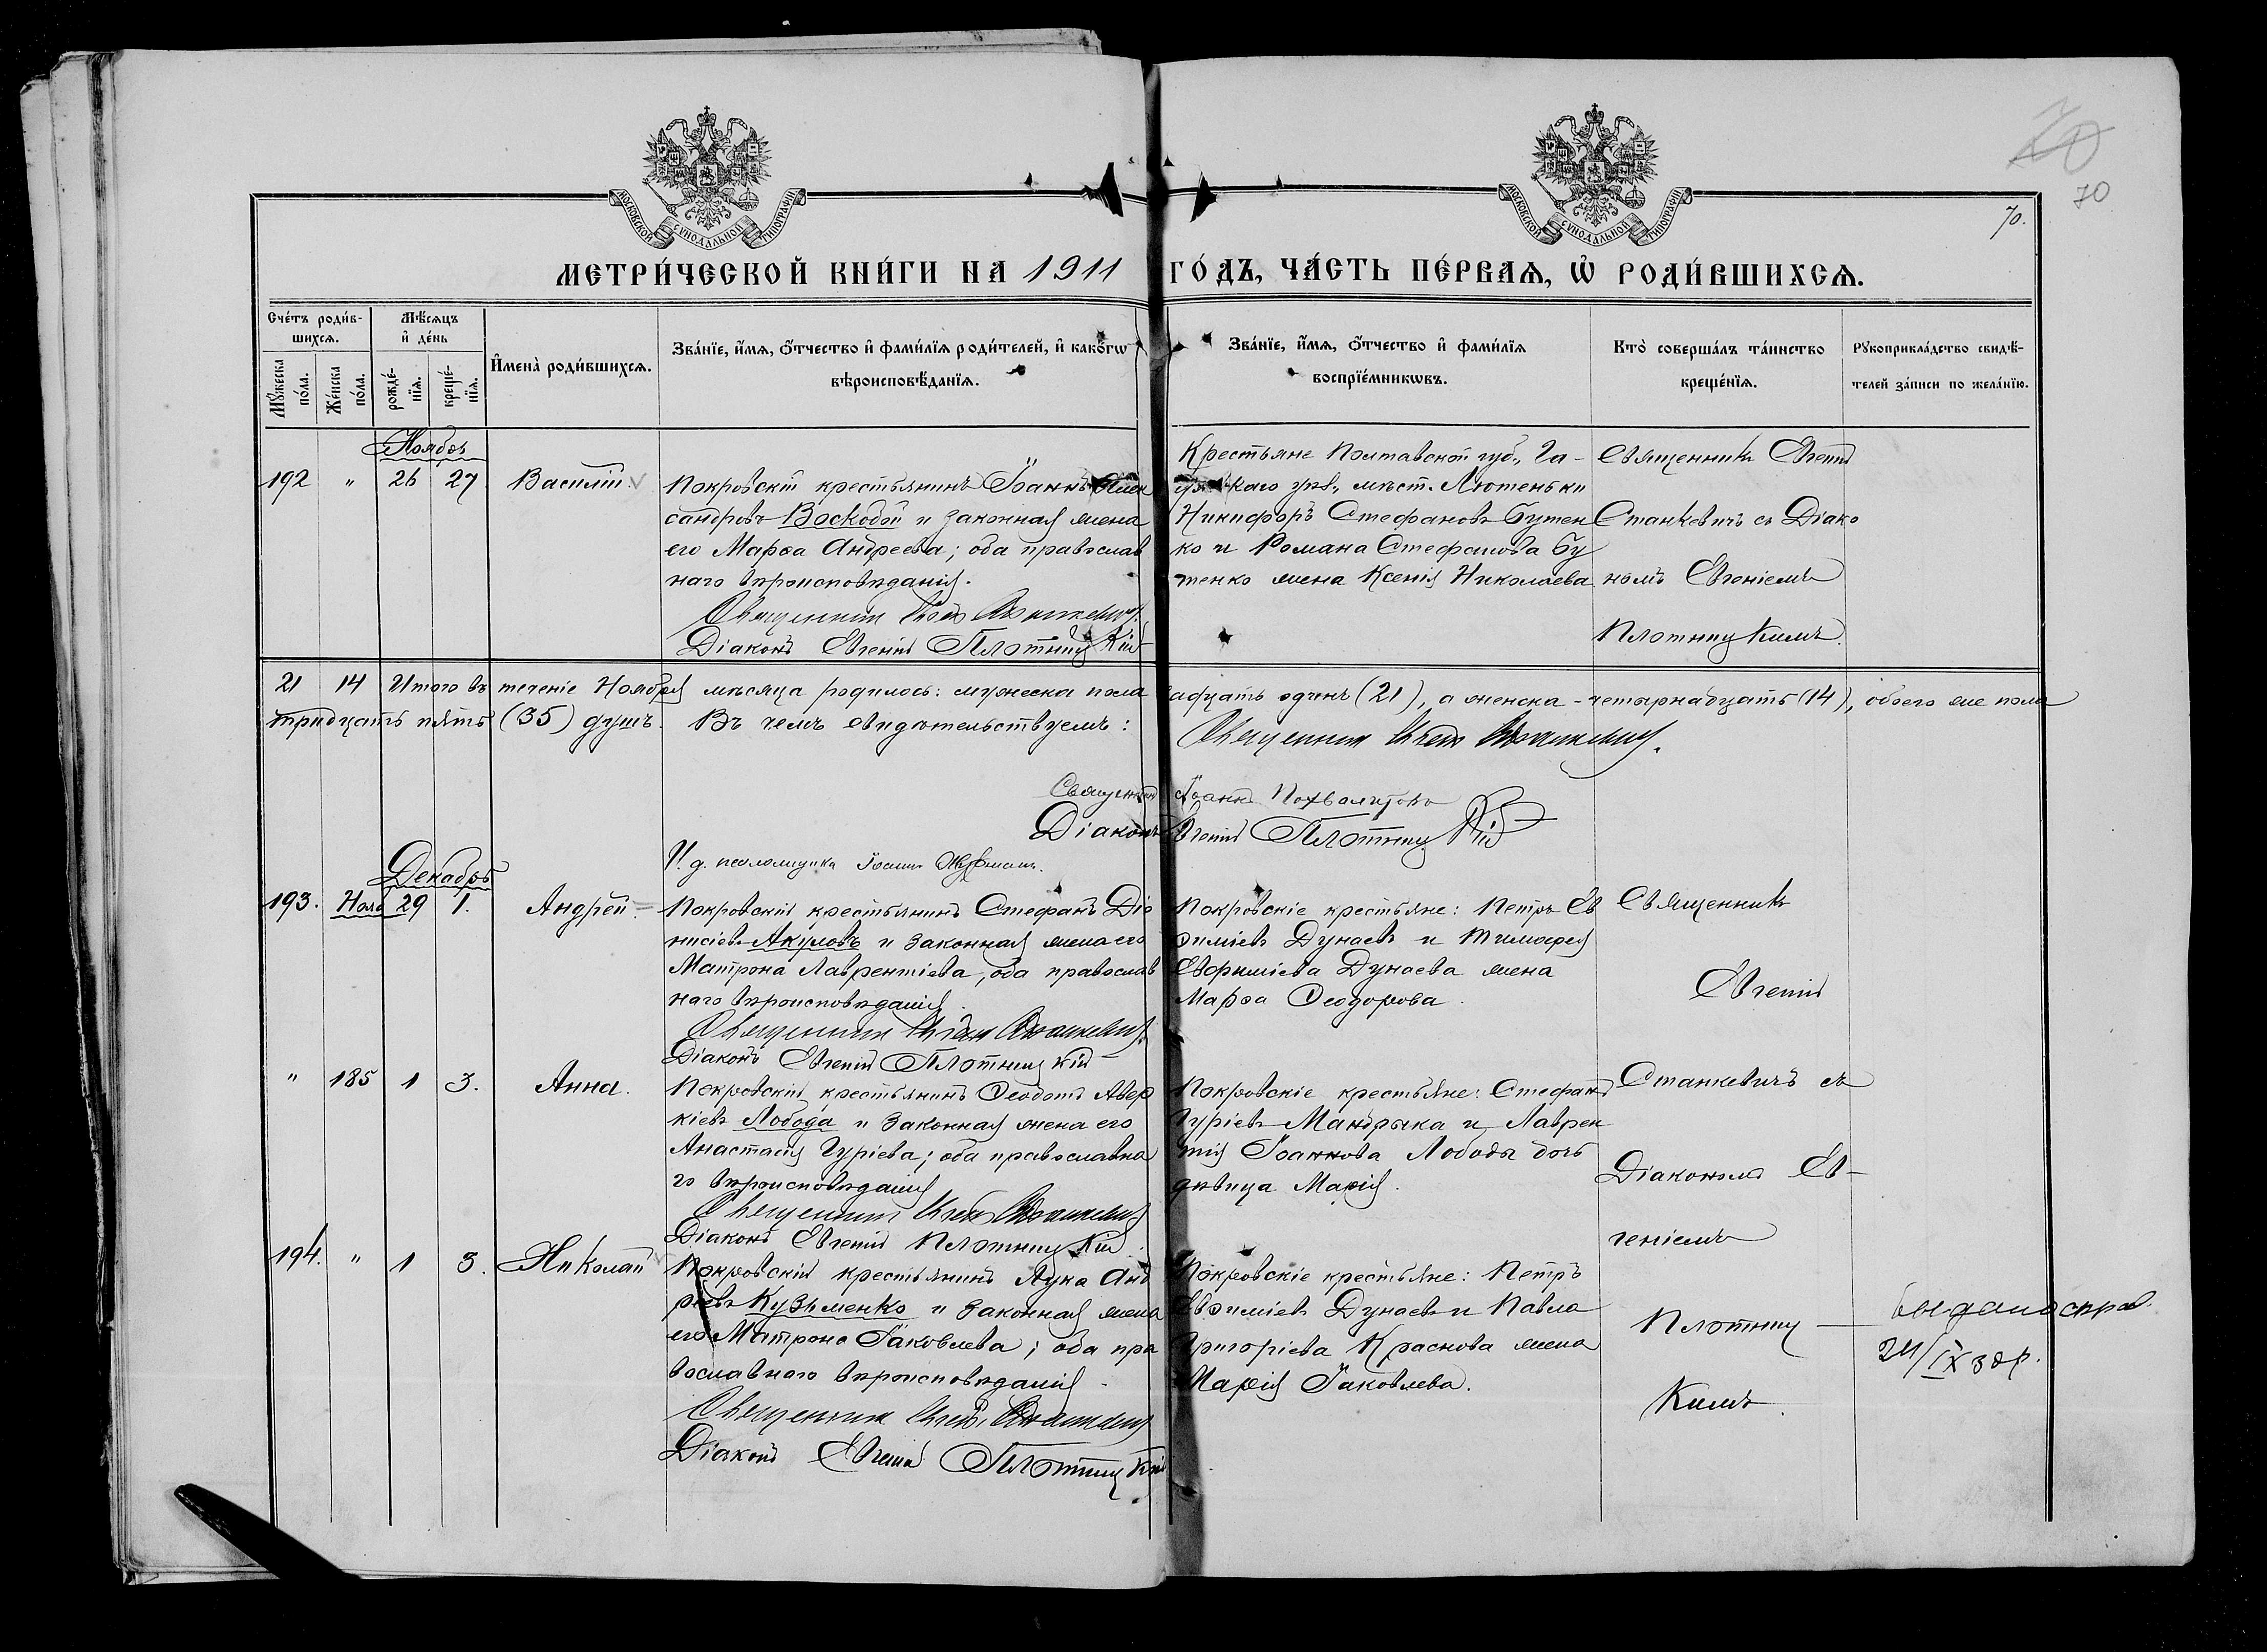 70
70
70.
МОСКОВСКОЙ СѴНОДАЛЬНОЙ ТИПОГРАФІИ
МОСКОВСКОЙ СѴНОДАЛЬНОЙ ТИПОГРАФІИ
МЕТРИ́ЧЕСКОЙ КНИ́ГИ НА 1911 ГО́ДЪ, ЧА́СТЬ ПЕ́РВАѦ, Ѡ҆ РОДИ́ВШИХСѦ.
Сче́тъ роди́в-
шихсѧ.
Мѣ́сѧцъ
и҆ де́нь
Мꙋ́жеска
по́ла.
Же́нска
по́ла.
рожде́-
нїѧ.
креще́-
нїѧ.
И҆мена̀ роди́вшихсѧ.
Зва́нїе, и҆́мѧ, ѻ҆́тчество и҆ фамн́лїѧ роди́телей, и҆ како́гѡ
вѣроисповѣ́данїѧ.
Зва́нїе, и҆́мѧ, ѻ҆́тчество и҆ фами́лїѧ
воспрїе́мникѡвъ.
Кто̀ соверша́лъ та́инство
креще́нїѧ.
Рꙋкоприкла́дство свидѣ́-
телей за́писи по жела́нїю.
Ноябрь
192 " 26 27 Василій.
Покровскій крестьянинъ Іоаннъ Алек
сандровъ Воскобой и законная жена
его Марѳа Андреева; оба православ
наго вѣроисповѣданія.
Священникъ Станкевичъ.
Діаконъ Евгеній Плотницкій
Крестьяне Полтавской губ., Га-
каго уѣз., мѣст. Лютеньки
Никифоръ Стефановъ Бутен
ко и Романа Стефанова Бу
тенко жена Ксенія Николаева
Священникъ Евгеній
Станкевичъ съ Діако
номъ Евгеніемъ
Плотницкимъ.
21 14 Итого въ теченіе Ноября мѣсяца родилось: мужеска пола двадцать одинъ (21), а женска - четырнадцать (14), обоего же пола
тридцать пять (35) душъ. Въ чемъ свидѣтельствуемъ:
Священникъ Станкевичъ.
Священникъ Іоаннъ
Діаконъ Евгеній Плотницкій
И. д. псаломщика Іоаннъ
Декабрь
193. Нояб 29 1. Андрей.
Покровскій крестьянинъ Стефанъ Діо
нисіевъ Акуловъ и законная жена его
Матрона Лаврентіева, оба православ
наго вѣроисповѣданія.
Священникъ Станкевичъ.
Діаконъ Евгеній Плотницкій
Покровскіе крестьяне: Петръ Ев
ѳиміевъ Дунаевъ и Тимоѳея
Евѳиміева Дунаева жена
Марѳа Ѳеодорова.
Священникъ
Евгеній
" 185 1 3. Анна.
Покровскій крестьянинъ Ѳеодотъ Авер
кіевъ Лобода и законная жена его
Анастасія Гуріева; оба православна
го вѣроисповѣданія
Священникъ Станкевичъ
Діаконъ Евгеній Плотницкій.
Покровскіе крестьяне: Стефанъ
Гуріевъ Мандрыка и Лаврен
тія Іоаннова Лободы дочь
дѣвица Марія.
Станкевичъ съ
Діакономъ Ев-
геніемъ
194. " 1 3. Николай
Покровскій крестьянинъ Лука Анд
реевъ Кузьменко и законная жена
его Матрона Іаковлева; оба пра
вославнаго вѣроисповѣданія.
Священникъ Станкевичъ
Діаконъ Евгеній Плотницкій
Покровскіе крестьяне: Петръ
Евѳиміевъ Дунаевъ и Павла
Григоріева Краснова жена
Марія Іаковлева.
Плотниц-
Кимъ.
выдана справ.
24/IX 38 р.